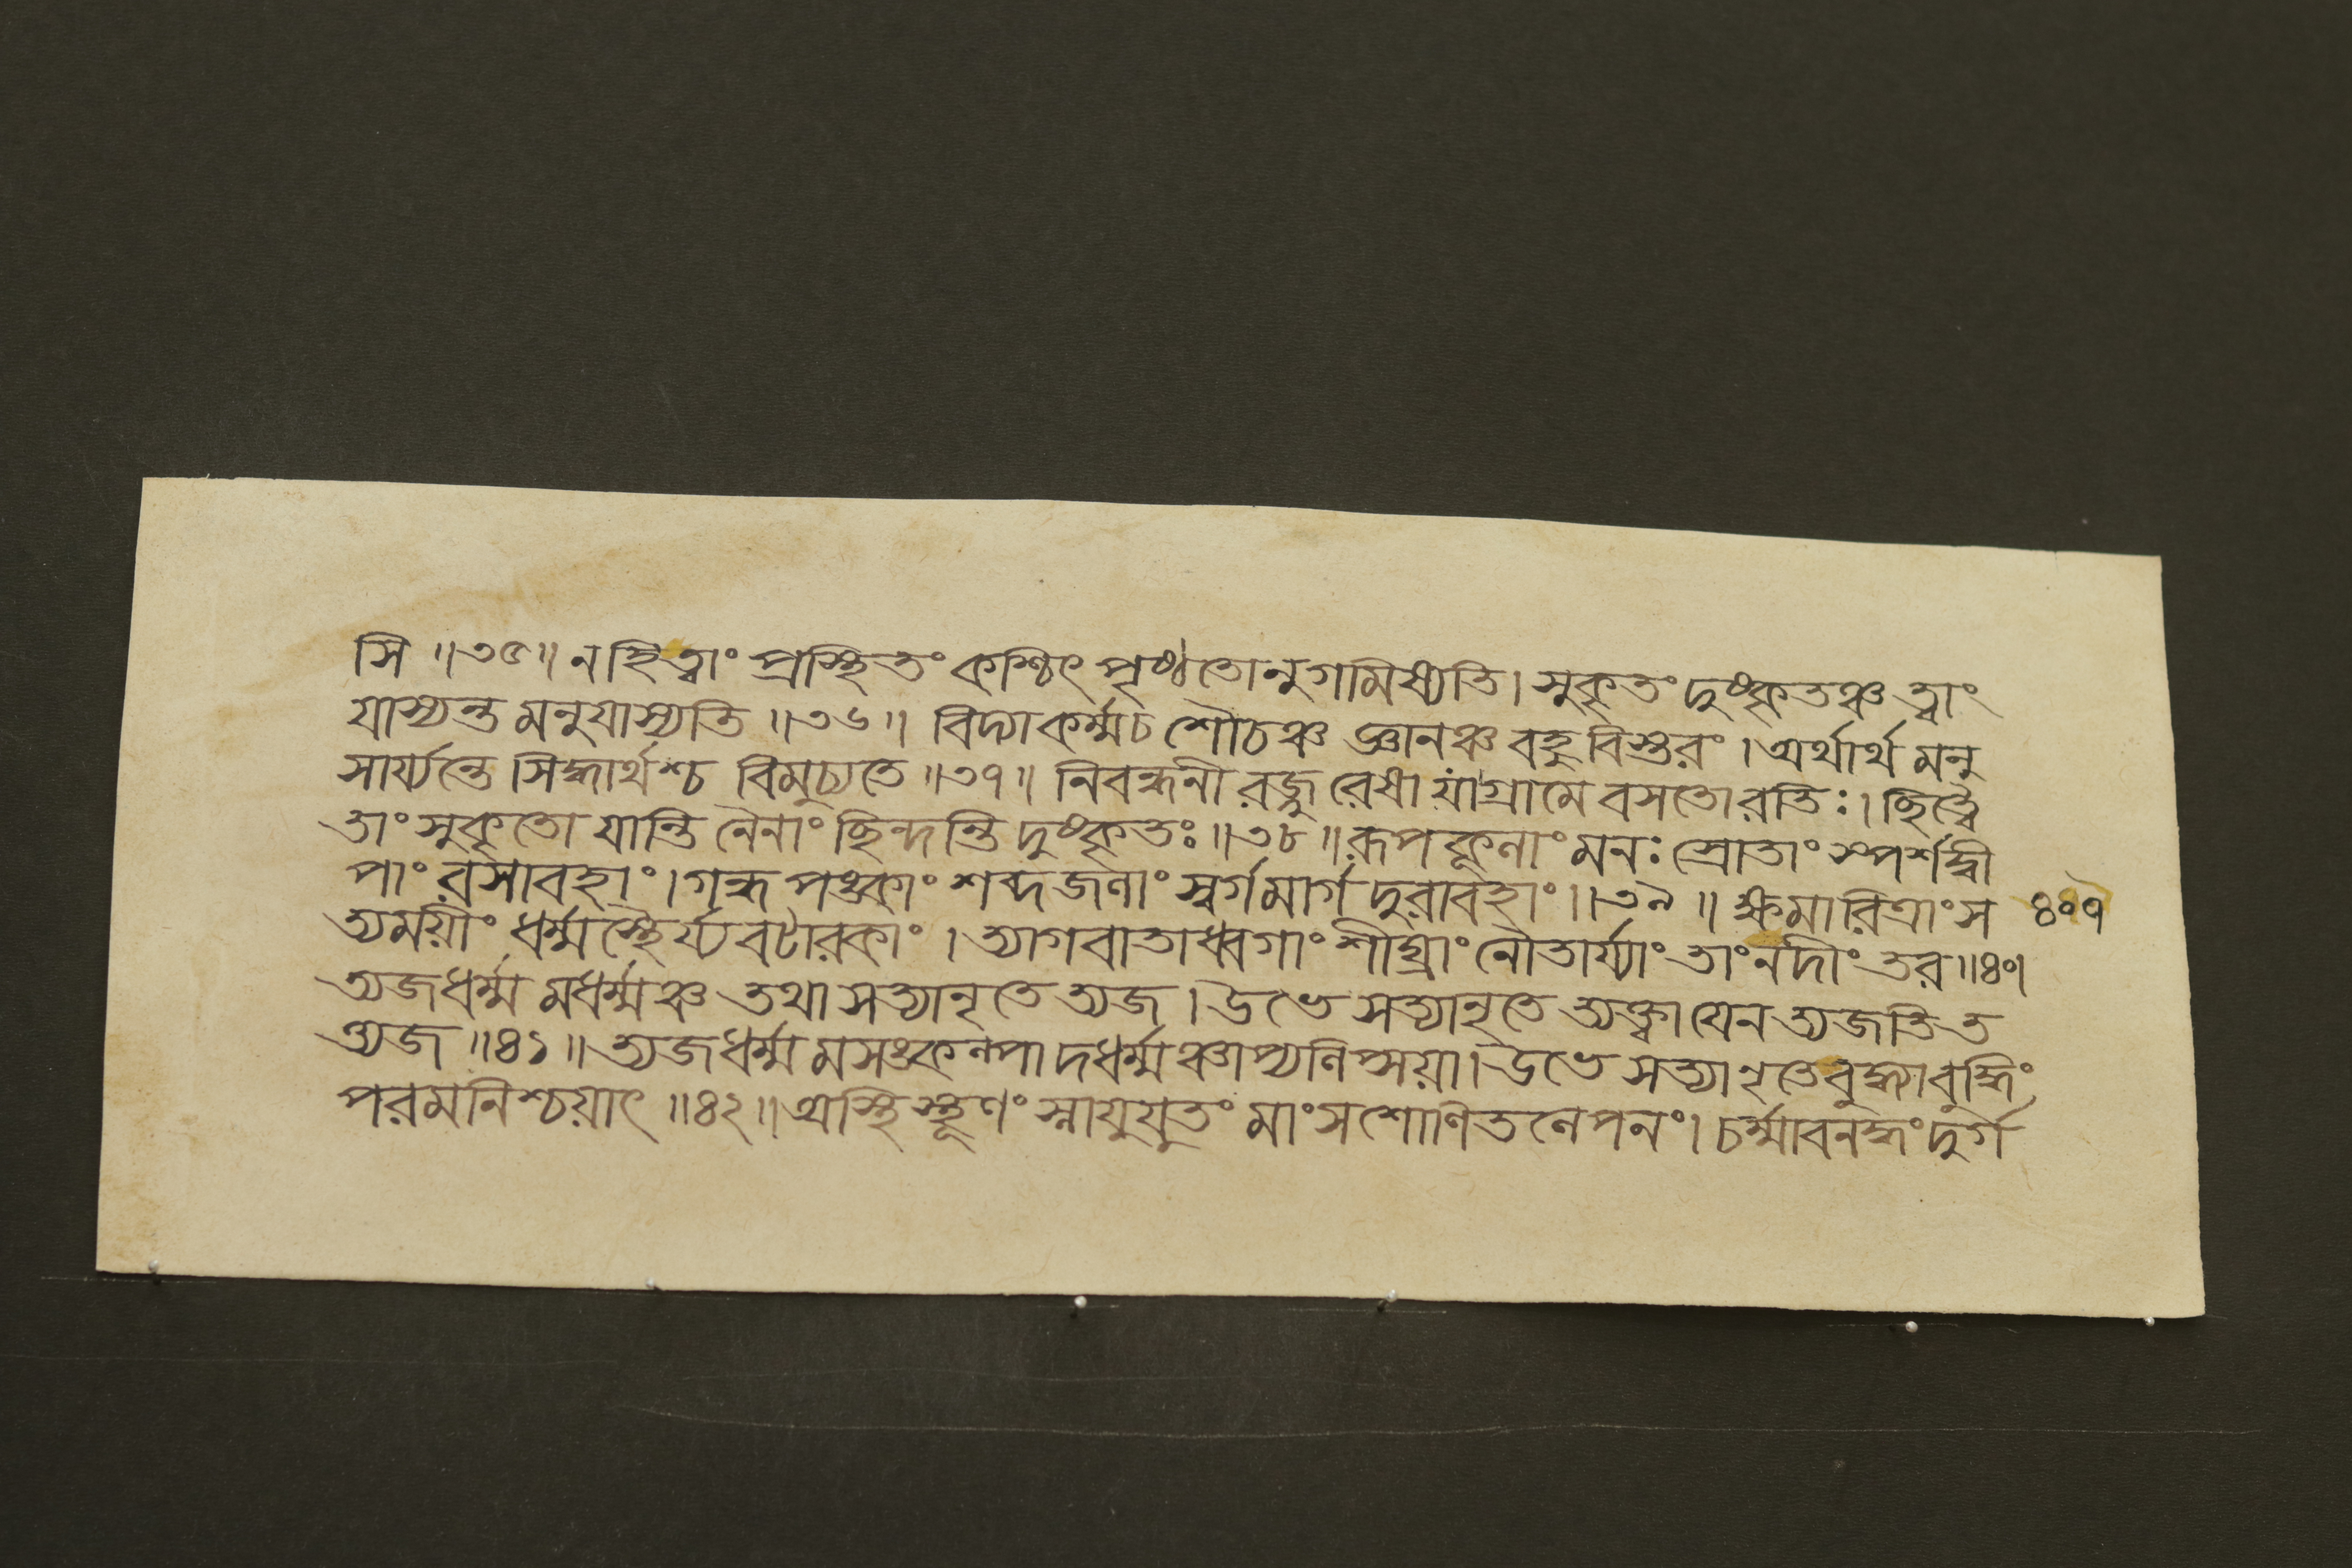 সি ॥৩৫॥ ন হি ত্বাং প্রস্থিতং কশ্চিৎ পৃষ্ঠতোনুগমিষ্যতি। সুকৃতং দুষ্কৃতঞ্চ ত্বাং
যাস্যন্ত মনুযাস্যতি ॥৩৬॥ বিদ্যা কর্ম্মচ শৌচঞ্চ জ্ঞানঞ্চ বহু বিস্তরং । অর্থার্থ মনু
সার্য্যন্তে । সিদ্ধার্থশ্চ বিমুচ্যতে ॥৩৭॥ নিবন্ধনী রজ্জু রেষা যা গ্রামে বসতো রতিঃ । ছিত্ত্বৈ
তাং সুকৃতো যান্তি নৈনাং ছিন্দন্তি দুষ্কৃতঃ ॥৩৮॥ রূপকূলাং মনঃ স্রোতাং স্পর্শদ্বী
পাং রসাবহাং । গন্ধ পঙ্কাং শব্দজলাং স্বর্গমার্গ দুরাবহাং ॥৩৯॥ ক্ষমারিত্রাং স ৪০৭
ত্যময়ীং ধর্ম্মস্থৈর্য্যবটারকাং । ত্যাগবাতাধ্বগাং শীঘ্রাং নৌতার্য্যাং তাং নদীং তর ॥৪০।
ত্যজধর্ম্ম মধর্ম্মঞ্চ তথা সত্যানৃতে ত্যজ । উভে সত্যানৃতে ত্যক্ত্বা যেন ত্যজতি ত
ত্ত্যজ ॥৪১॥ ত্যজধর্ম্ম মসঙ্কল্পা দধর্ম্মঞ্চাপ্যলিপ্সয়া। উভে সত্যানৃতে বুদ্ধ্যা বুদ্ধিং
পরমনিশ্চয়াৎ ॥৪২॥ অস্থি স্থূণং স্নায়ুযুতং মাংসশোণিতলেপনং। চর্ম্মাবনদ্ধং দুর্গ